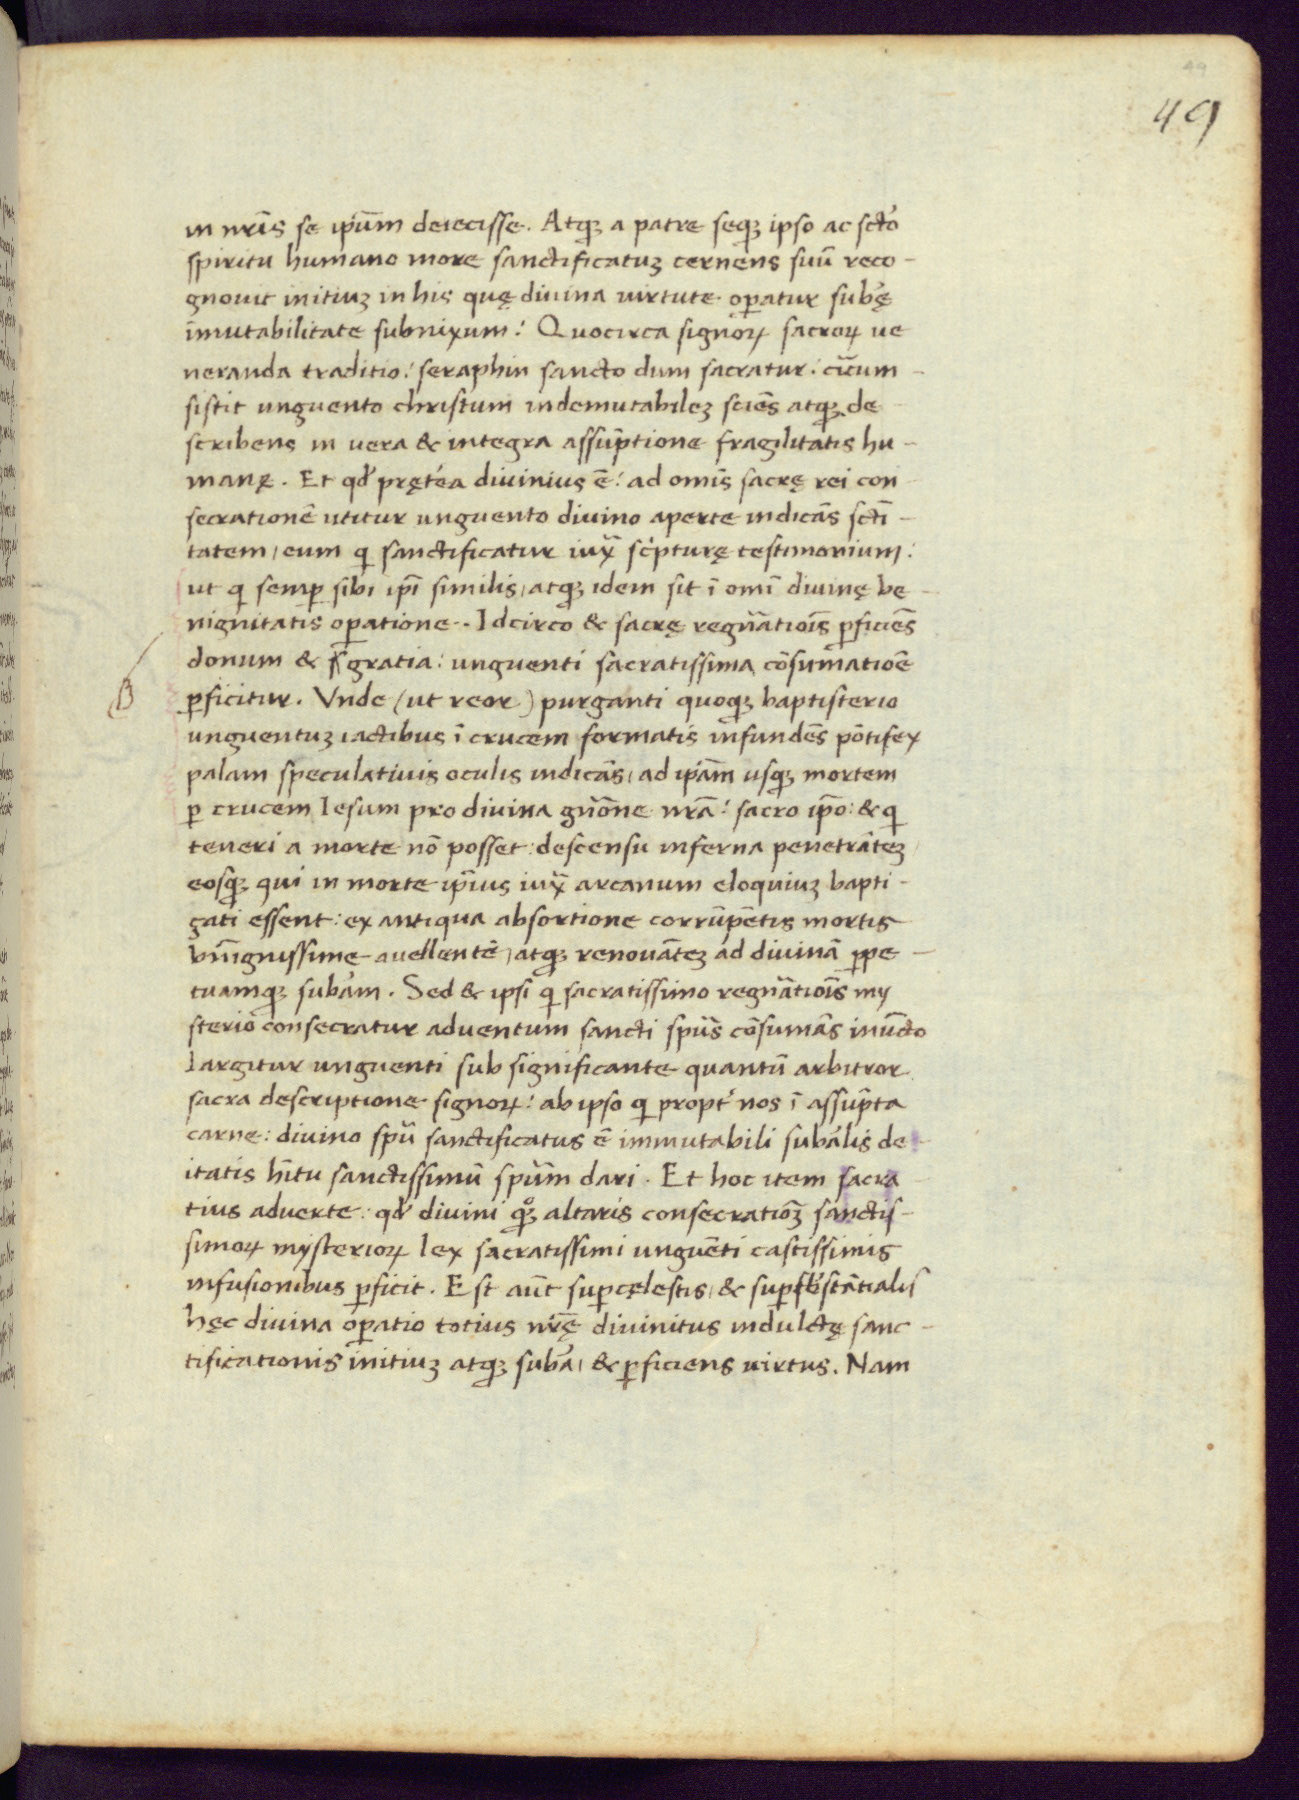 49
49
in nr̄is se ip̄um deiecisse. Atq; a patre seq; ipso ac sctō
spiritu humano more sanctificatuȝ cernens suū reco-
gnouit initiuȝ in his quę diuina uirtute op̄atur sub̄ę
īmutabilitate subnixum: Quocirca signoꝝ sacroꝝ ue
neranda traditio: seraphin sancto dum sacratur: circum-
sistit unguento christum indemutabileȝ sciēs atq; de
scribens in uera & integra assūptione fragilitatis hu-
manę. Et qđ pręteā diuinius ē: ad omīs sacrę rei con
secrationē utitur unguento diuino aperte indicās scti-
tatem, eum q sanctificatur iux̄ sc̄pturę testimonium:
ut q semꝑ sibi ip̄i similis, atq; idem sit ī omī diuinę be-
nignitatis oꝑatione. Idcirco & sacrę regn̄atiōis ꝑficiēs
donum & gratia: unguenti sacratissima cōsumatiōe
B
ꝑficitur. Vnde (ut reor) purganti quoq; baptisterio
unguentuȝ iactibus ī crucem formatis infundēs pōtifex
palam speculatiuis oculis indicās, ad ip̄am usq; mortem
ꝑ crucem Iesum pro diuina gn̄ōne nr̄a: sacro ip̄o: & q
teneri a morte nō posset: descensu inferna penetrāteȝ
eosq; qui in morte ip̄ius iux̄ arcanum eloquiuȝ bapti-
zati essent: ex antiqua absortione corrūpētis mortis
bn̄ignissime auellentē, atq; renouāteȝ ad diuinā ꝑpe-
tuamq; sub̄am. Sed & ipsi q sacratissimo regn̄atiōis my
sterio consecratur aduentum sancti spūs cōsumās inūcto
largitur unguenti sub significante quantū arbitror
sacra descriptione signoꝝ: ab ipso q propt̄ nos ī assūpta
carne: diuino spū sanctificatus ē immutabili sub̄alis de-
itatis hītu sanctissimū spūm dari. Et hoc item sacra
tius aduerte: qđ diuini qͦȝ altaris consecratiōȝ sanctis-
simoꝝ mysterioꝝ lex sacratissimi unguēti castissimis
infusionibus ꝑficit. Est aūt suꝑcęlestis, & suꝑsb̄stātialis
hęc diuina oꝑatio totius nr̄ę diuinitus indultę sanc-
tificationis initiuȝ atq; sub̄a, & ꝑficiens uirtus. Nam